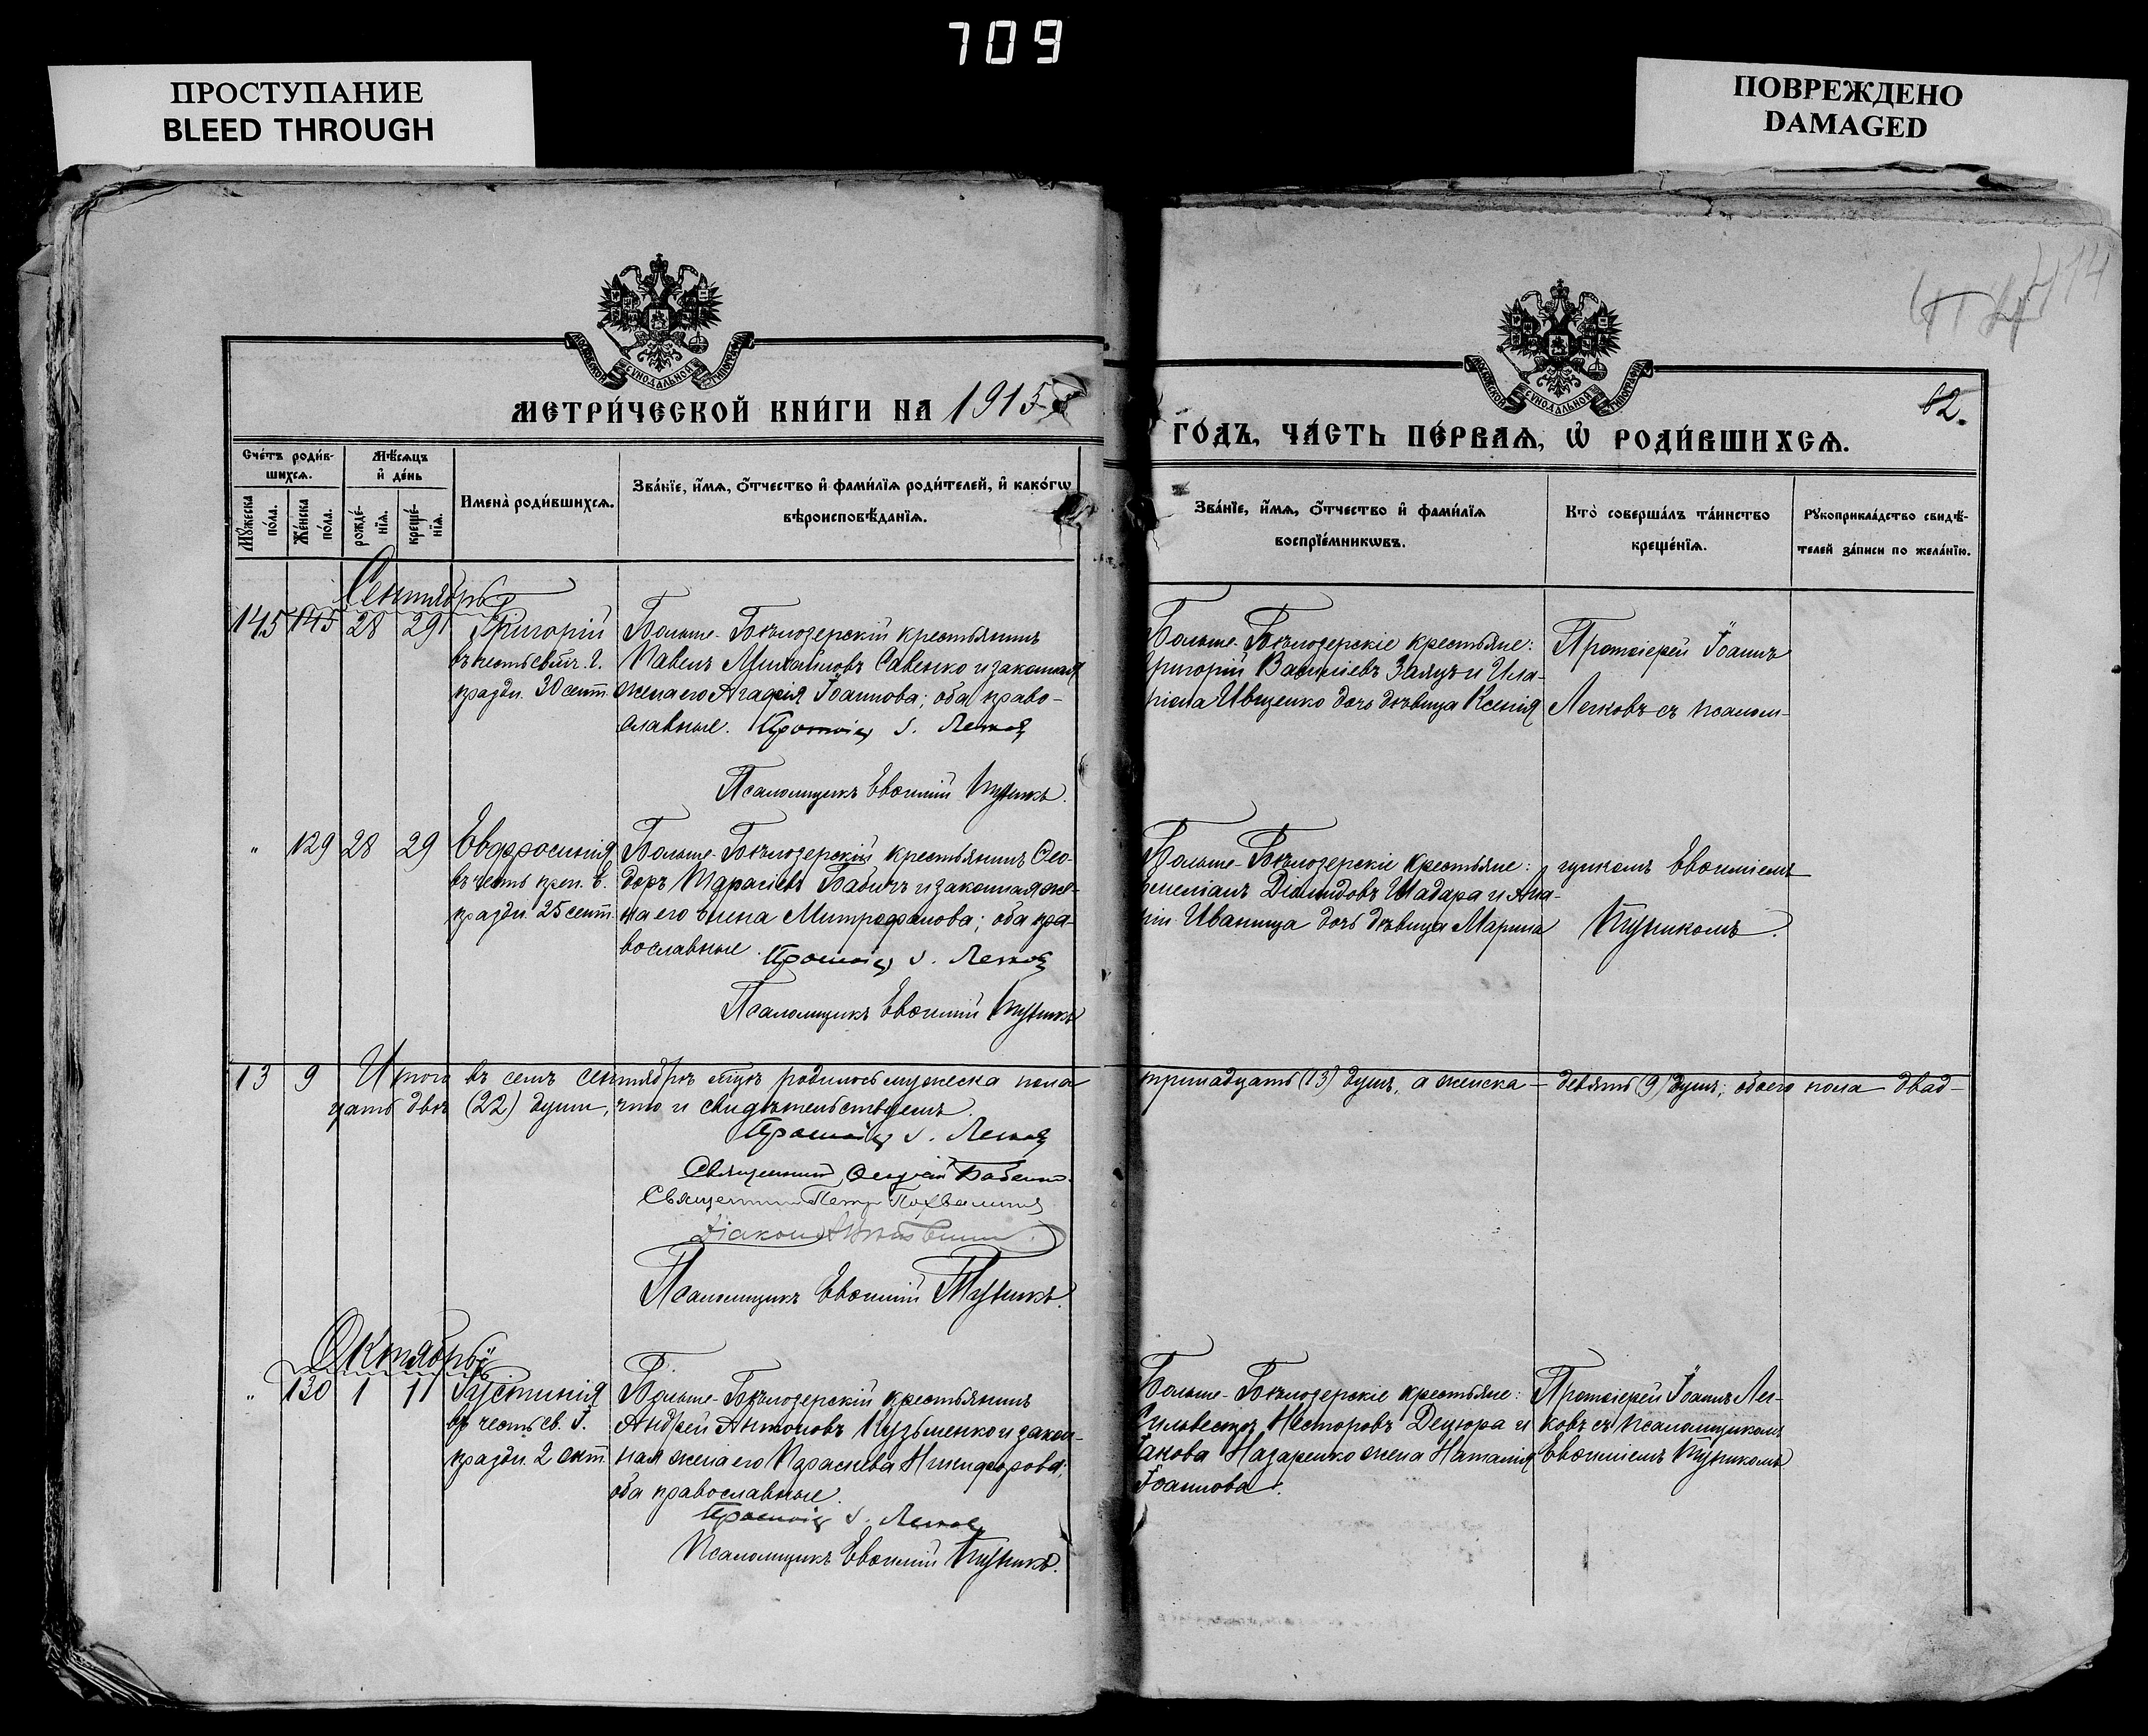 709
ПРОСТУПАНИЕ
BLEED THROUGH
ПОВРЕЖДЕНО
DAMAGED
МЕТРИ́ЧЕСКОЙ КНИ́ГИ НА 1915
ГО́ДЪ, ЧА́СТЬ ПЕ́РВАѦ, Ѡ҆ РОДИ́ВШИХСѦ.
82.
Сче́тъ роди́в-
шихсѧ.
Мѣ́сѧцъ
и҆ де́нь
Мꙋ́жеска
по́ла.
Же́нска
по́ла.
рожде́-
нїѧ.
креще́-
нїѧ.
Имена̀ роди́вшихсѧ.
Зва́нїе, и҆́мѧ, ѻ҆́тчество и҆ фами́лїѧ роди́телей, и҆ како́гѡ
вѣроисповѣ́данїѧ.
Зва́нїе, и҆́мѧ, ѻ҆́тчество и҆ фами́лїѧ
воспрїе́мникѡвъ.
Кто̀ соверша́лъ та́инство
креще́нїѧ.
Рꙋкоприкла́дство свидѣ́-
телей за́писи по жела́нїю.
Сентябрь
145 145 28 29 Григорій
въ честь свщм. Г.
праздн. 30 сент.
Больше-Бѣлозерскій крестьянинъ
Павелъ Михайловъ Савенко и законная
жена его Агафія Іоаннова; оба право-
славные. Протоіер І. Легков
Псаломщикъ Евфимій Пушикъ.
Больше-Бѣлозерскіе крестьяне:
Григорій Васильевъ Заяцъ и Ила-
ріона Ивщенко дочь дѣвица Ксенія
Протоіерей Іоаннъ
Легковъ съ псалом-
" 129 28 29 Евфросинія
въ честь преп. Е.
праздн. 25 сент.
Больше-Бѣлозерскій крестьянинъ Ѳео-
доръ Тарасіевъ Бабичъ и законная же-
на его Елена Митрофанова; оба пра-
вославные. Протоіер І. Легков
Псаломщикъ Евфимій Пушикъ
Больше-Бѣлозерскіе крестьяне:
Діомидовъ Шадара и Ана-
ніи Иваница дочь дѣвица Марина
щикомъ Евфиміемъ
Пушикомъ.
13 9 Итого въ семъ сентябрѣ мцѣ родилось мужеска пола
тринадцать (13) душъ, а женска — девять (9) душъ; обоего пола двад-
цать двѣ (22) души, что и свидѣтельствуемъ.
Протоіер І. Легков
Священник Бабенко
Священник Петр
Діакон
Псаломщикъ Евфимій Пушикъ.
Октябрь
" 130 1 11 Іустинія
въ честь св. І.
праздн. 2 окт.
Больше-Бѣлозерскій крестьянинъ
Андрей Антоновъ Кузьменко и закон-
ная жена его Параскева Никифорова;
оба православные.
Протоіер І. Легков
Псаломщикъ Евфимій Пушикъ.
Больше-Бѣлозерскіе крестьяне:
Сильвестръ Несторовъ Децюра и
Іакова Назаренко жена Наталія
Іоаннова.
Протоіерей Іоаннъ Лег-
ковъ съ псаломщикомъ
Евфиміемъ Пушикомъ